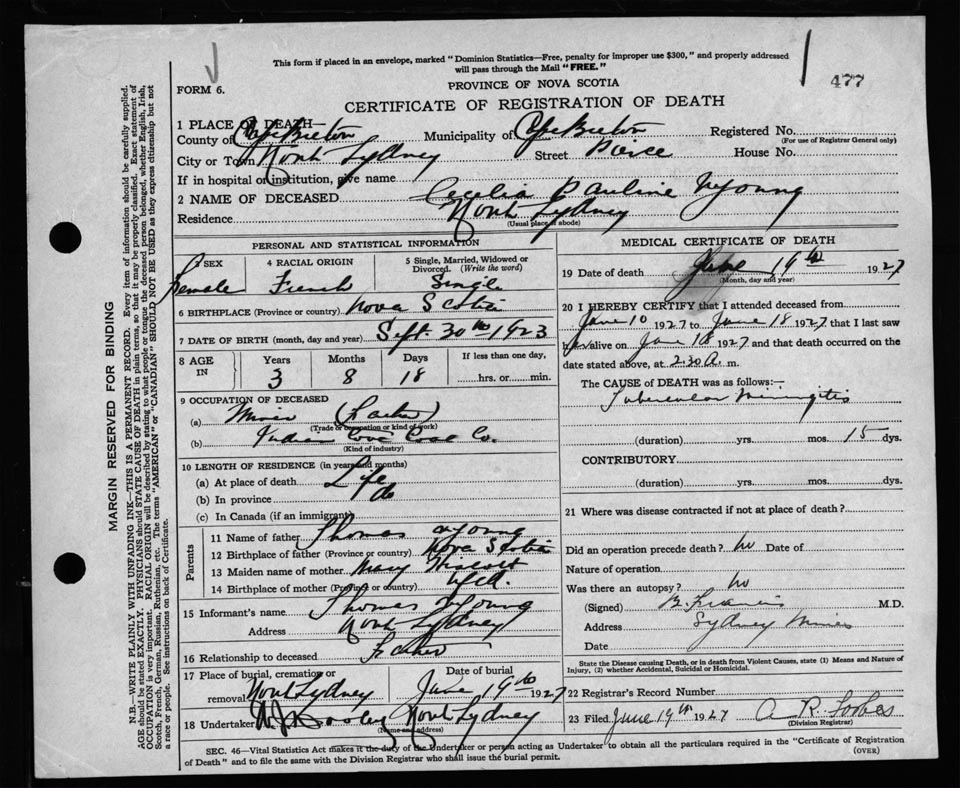 This form if placed in an envelope, marked "Dominion Statistics—Free, penalty for improper use $300," and properly addressed
will pass through the Mail "FREE."
477
FORM 6.
PROVINCE OF NOVA SCOTIA
CERTIFICATE OF REGISTRATION OF DEATH
1 PLACE OF DEATH—
County of Cape Breton Municipality of Cape Breton Registered No.
(For use of Registrar General only)
City or Town North Sydney Street Peirce House No.
If in hospital or institution, give name
2 NAME OF DECEASED Cecelia Pauline Young
Residence North Sydney
(Usual place of abode)
PERSONAL AND STATISTICAL INFORMATION
3 SEX Female
4 RACIAL ORIGIN French
5 Single, Married, Widowed or Divorced. (Write the word) Single
6 BIRTHPLACE (Province or country) Nova Scotia
7 DATE OF BIRTH (month, day and year) Sept. 30th 1923
8 AGE IN Years 3 Months 8 Days 18 If less than one day, hrs. or min.
9 OCCUPATION OF DECEASED
(a) Miner (Father)
(Trade occupation or kind of work)
(b) Indian Cove Coal Co.
(Kind of industry)
10 LENGTH OF RESIDENCE (in years and months)
(a) At place of death Life
(b) In province do
(c) In Canada (if an immigrant)
Parents
11 Name of father Thomas Young
12 Birthplace of father (Province or country) Nova Scotia
13 Maiden name of mother Mary
14 Birthplace of mother (Province or country)
15 Informant's name Thomas Young
Address North Sydney
16 Relationship to deceased Father
17 Place of burial, cremation or removal North Sydney Date of burial June 19th 1927
18 Undertaker North Sydney
(Name and address)
MEDICAL CERTIFICATE OF DEATH
19 Date of death June 19th 1927
(Month, day and year)
20 I HEREBY CERTIFY that I attended deceased from
June 10 1927 to June 18 1927, that I last saw
alive on June 18 1927 and that death occurred on the
date stated above, at 2.30 A. m.
The CAUSE OF DEATH was as follows:—
Tubercular Meningitis
(duration) yrs. mos. 15 dys.
CONTRIBUTORY
(duration) yrs. mos. dys.
21 Where was disease contracted if not at place of death?
Did an operation precede death? no Date of
Nature of operation
Was there an autopsy? no
(Signed) B. Francis M.D.
Address Sydney Mines
Date
State the Disease causing Death, or in death from Violent Causes, state (1) Means and Nature of
Injury, (2) whether Accidental, Suicidal or Homicidal.
22 Registrar's Record Number
23 Filed June 19th 1927 A R Forbes
(Division Registrar)
SEC. 46—Vital Statistics Act makes it the duty of the Undertaker or person acting as Undertaker to obtain all the particulars required in the "Certificate of Registration
of Death" and to file the same with the Division Registrar who shall issue the burial permit.
(OVER)
MARGIN RESERVED FOR BINDING
N.B.—WRITE PLAINLY WITH UNFADING INK—THIS IS A PERMANENT RECORD. Every item of information should be carefully supplied.
AGE should be stated EXACTLY. PHYSICIANS should STATE CAUSE OF DEATH in plain terms, so that it may be properly classified. Exact statement of
OCCUPATION is very important. RACIAL ORIGIN will be described by stating to what people or tongue the deceased person belonged, whether English, Irish,
Scotch, French, German, Russian, Ruthenian, etc. The terms "AMERICAN" or "CANADIAN" SHOULD NOT BE USED as they express citizenship but not
a race or people. See instructions on back of Certificate.